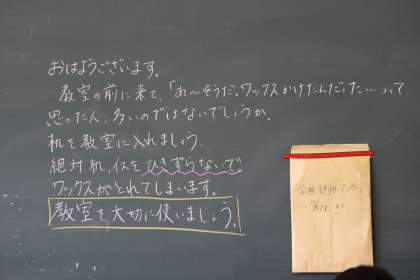 おはようございます。
教室の前に来て、「あ〜そうだ。ワックスかけたんだった…」って
思った人、多いのではないでしょうか。
机を教室に入れましょう。
絶対机、イスをひきずらないで
ワックスがとれてしまいます。
教室を大切に使いましょう。
学校評価アンケート
まで